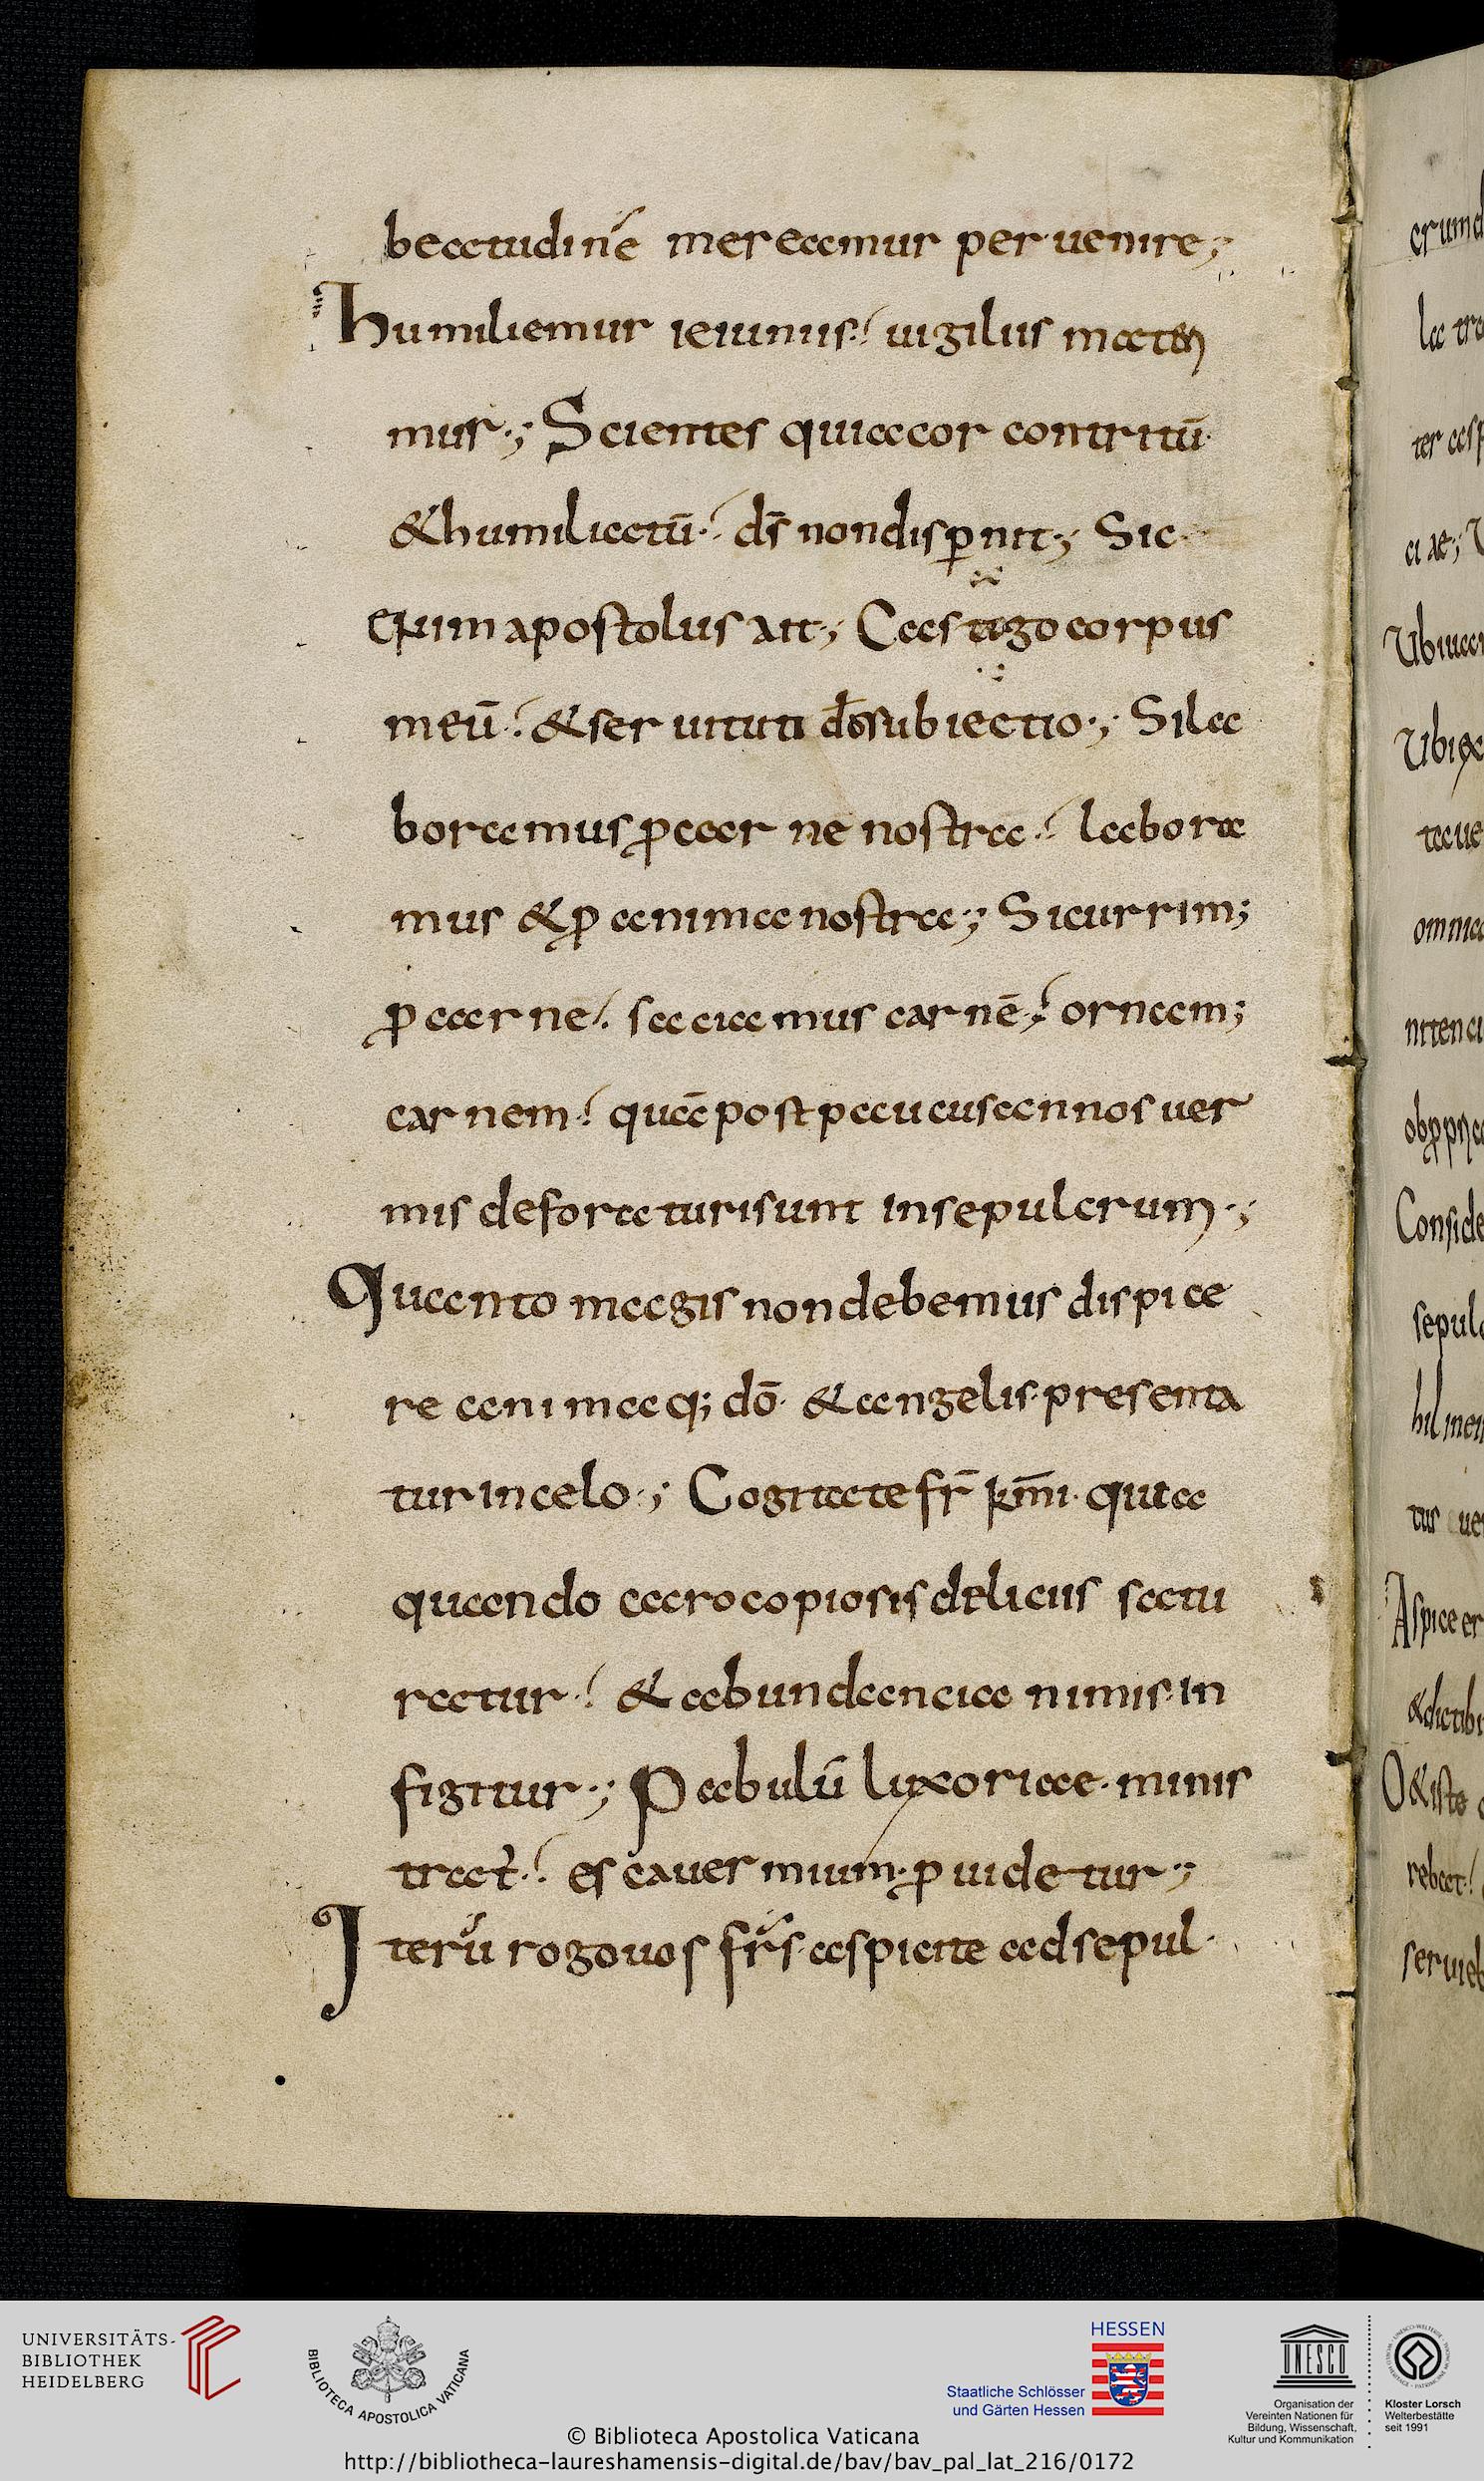 beatudinē mereamur peruenire;
humiliemur ieiuniis· uigiliis maten
mur·; Scientes quia cor contritū·
&humiliatū· ds̄ non dispnit·; Sic
enim apostolus ait·; Castigo corpus
meū· & seruituti dō subiectio·; Si la
boramus ꝓ carne nostra· labora
mus & ꝓ anima nostra·; Si currim;
ꝓ carne· saciamus carnē· ornam;
carnem· quā post paucus annos uer
mis deforaturi sunt in sepulcrum·;
Quanto magis non debemus dispice
re anima q; dō· & angelis· presenta
tur in celo·; Cogitate fr̄ km̄i· quia
quando caro copiosis deliciis satu
ratur· & abundancia nimis· in
figitur·; Pabulū luxoriae· minis
trat̄· esca uermium· ꝓuidetur·;
Iterū rogo uos frs̄· aspicite ad sepul·
erum
la tra
ci ae;
omnia
Conside
sepulc
Aspice er
O & iste
rebat
seruieb
UNIVERSITÄTS-
BIBLIOTHEK
HEIDELBERG
BIBLIOTECA APOSTOLICA VATICANA
HESSEN
Staatliche Schlösser
und Gärten Hessen
UNESCO
Organisation der
Vereinten Nationen für
Bildung, Wissenschaft,
Kultur und Kommunikation
Kloster Lorsch
Welterbestätte
seit 1991
© Biblioteca Apostolica Vaticana
http://bibliotheca-laureshamensis-digital.de/bav/bav_pal_lat_216/0172